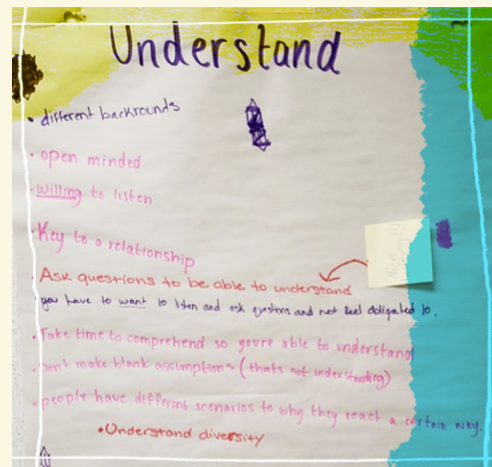 Understand
• different backrounds
• open minded
• willing to listen
• Key to a relationship
• Ask questions to be able to understand
• you have to want to listen and ask questions and not feel obligated to.
• Take time to comprehend so youre able to understand
• Dont make blank assumptions (thats not understanding)
• people have different scenarios to why they react a certain way.
• Understand diversity